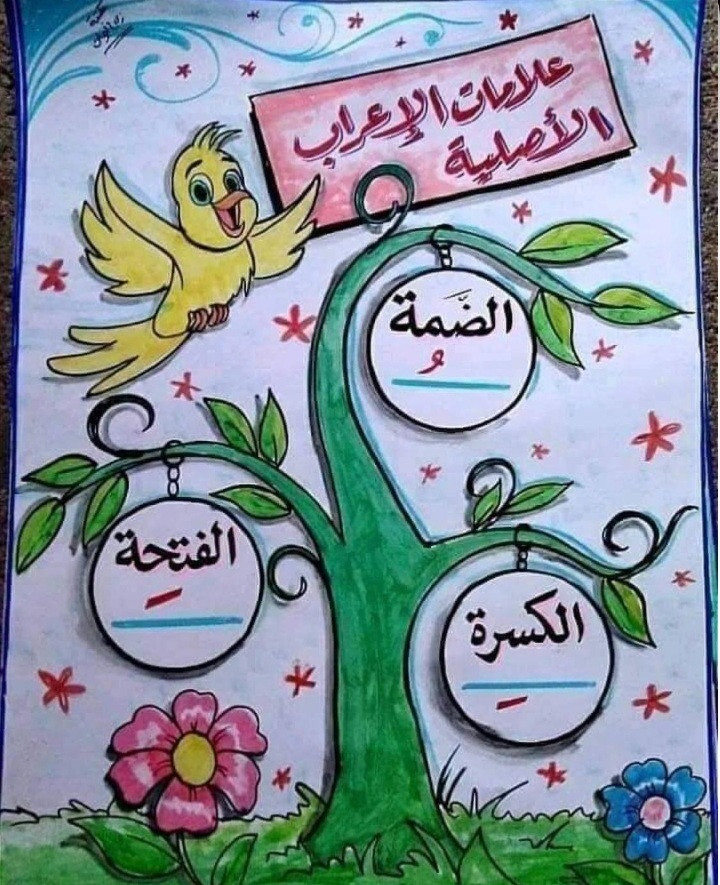 علامات الإعراب
الأصلية
الضَمة
ُ
الفتحة
َ
الكسرة
ِ